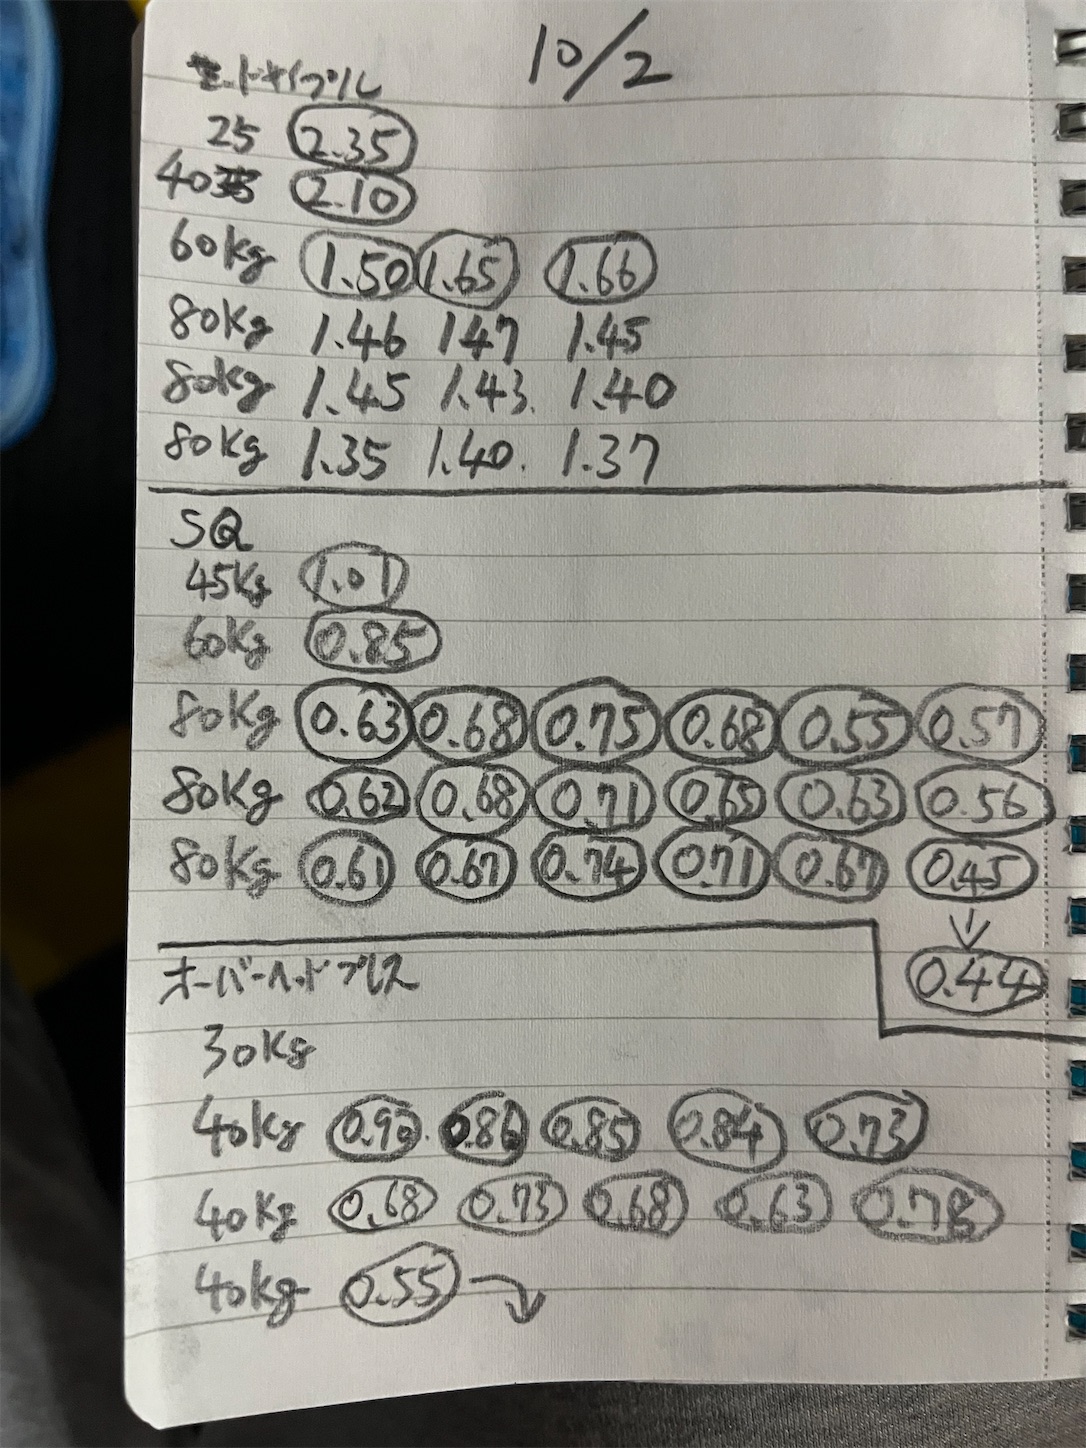 10/2
ミッドサイプル
25 2.35
40 2.10
60kg 1.50 1.65 1.66
80kg 1.46 147 1.45
80kg 1.45 1.43. 1.40
80kg 1.35 1.40. 1.37
SQ
45kg 1.01
60kg 0.85
80kg 0.63 0.68 0.75 0.68 0.55 0.57
80kg 0.62 0.68 0.71 0.65 0.63 0.56
80kg 0.61 0.67 0.74 0.71 0.67 0.45
↓
0.44
オーバーヘッドプレス
30kg
40kg 0.90. 0.86 0.85 0.84 0.73
40kg 0.68 0.73 0.68 0.63 0.78
40kg 0.55